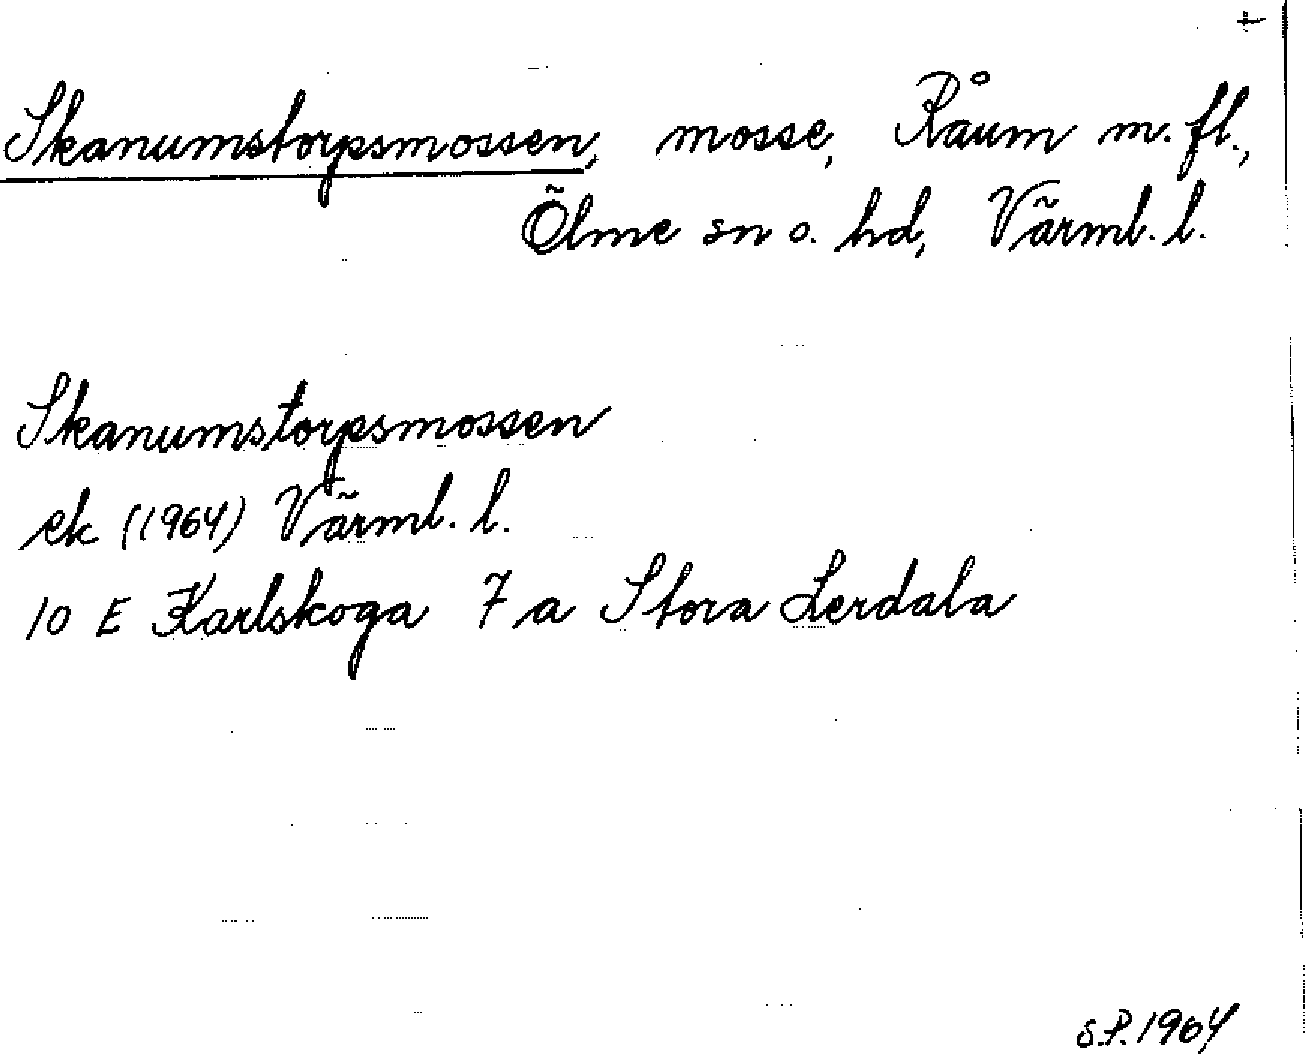 Skanumstorpsmossen, mosse, Råum m. fl.,
Ölme sn o. hd, Värml. l.
Skanumstorpsmossen
ek (1964) Värml. l.
10 E Karlskoga 7 a Stora Lerdala
S.P. 1964